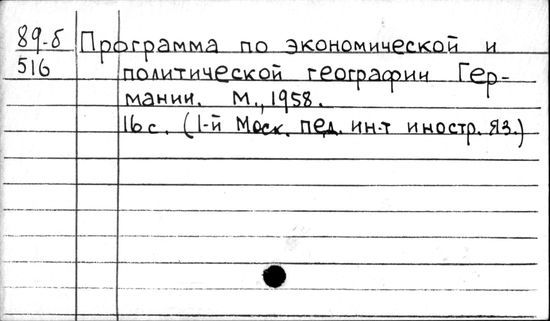 89-б Программа по экономической и
516 политической географии Гер-
мании. М., 1958.
16 с. (1-й Моск. пед. ин-т иностр. яз.)